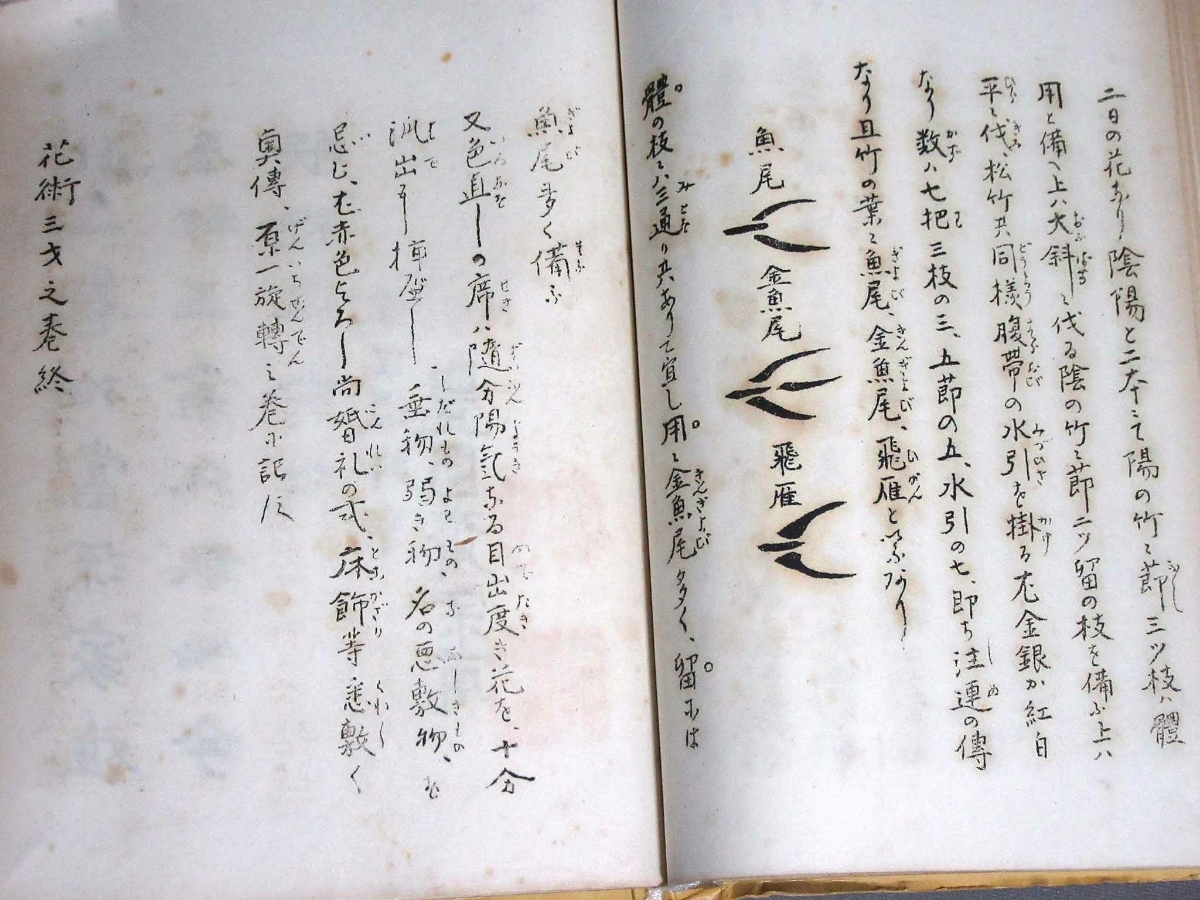 二日の花なり陰陽と二本にて陽の竹に節三ツ枝ハ體
用と備へ上ハ大斜に伐る陰の竹に節二ツ留の枝を備ふ上ハ
平に伐、松竹共同様腹帯の水引を掛る尤金銀か紅白
なり数ハ七把三枝の三、五節の五、水引の七、即ち注連の傳
なり且竹の葉に魚尾、金魚尾、飛雁と云ふあり
魚尾
金魚尾
飛雁
體の枝にハ三通り共ありて宜し用に金魚尾多く、留には
魚尾多く備ふ
又色直しの席ハ隨分陽氣なる目出度き花を、十分
出す挿・垂物、弱き物、名の悪敷物、を
忌む、尤赤色よろし尚婚礼の式、床飾等悉敷く
奥傳、原一旋轉之巻に記す
花術三才之巻終